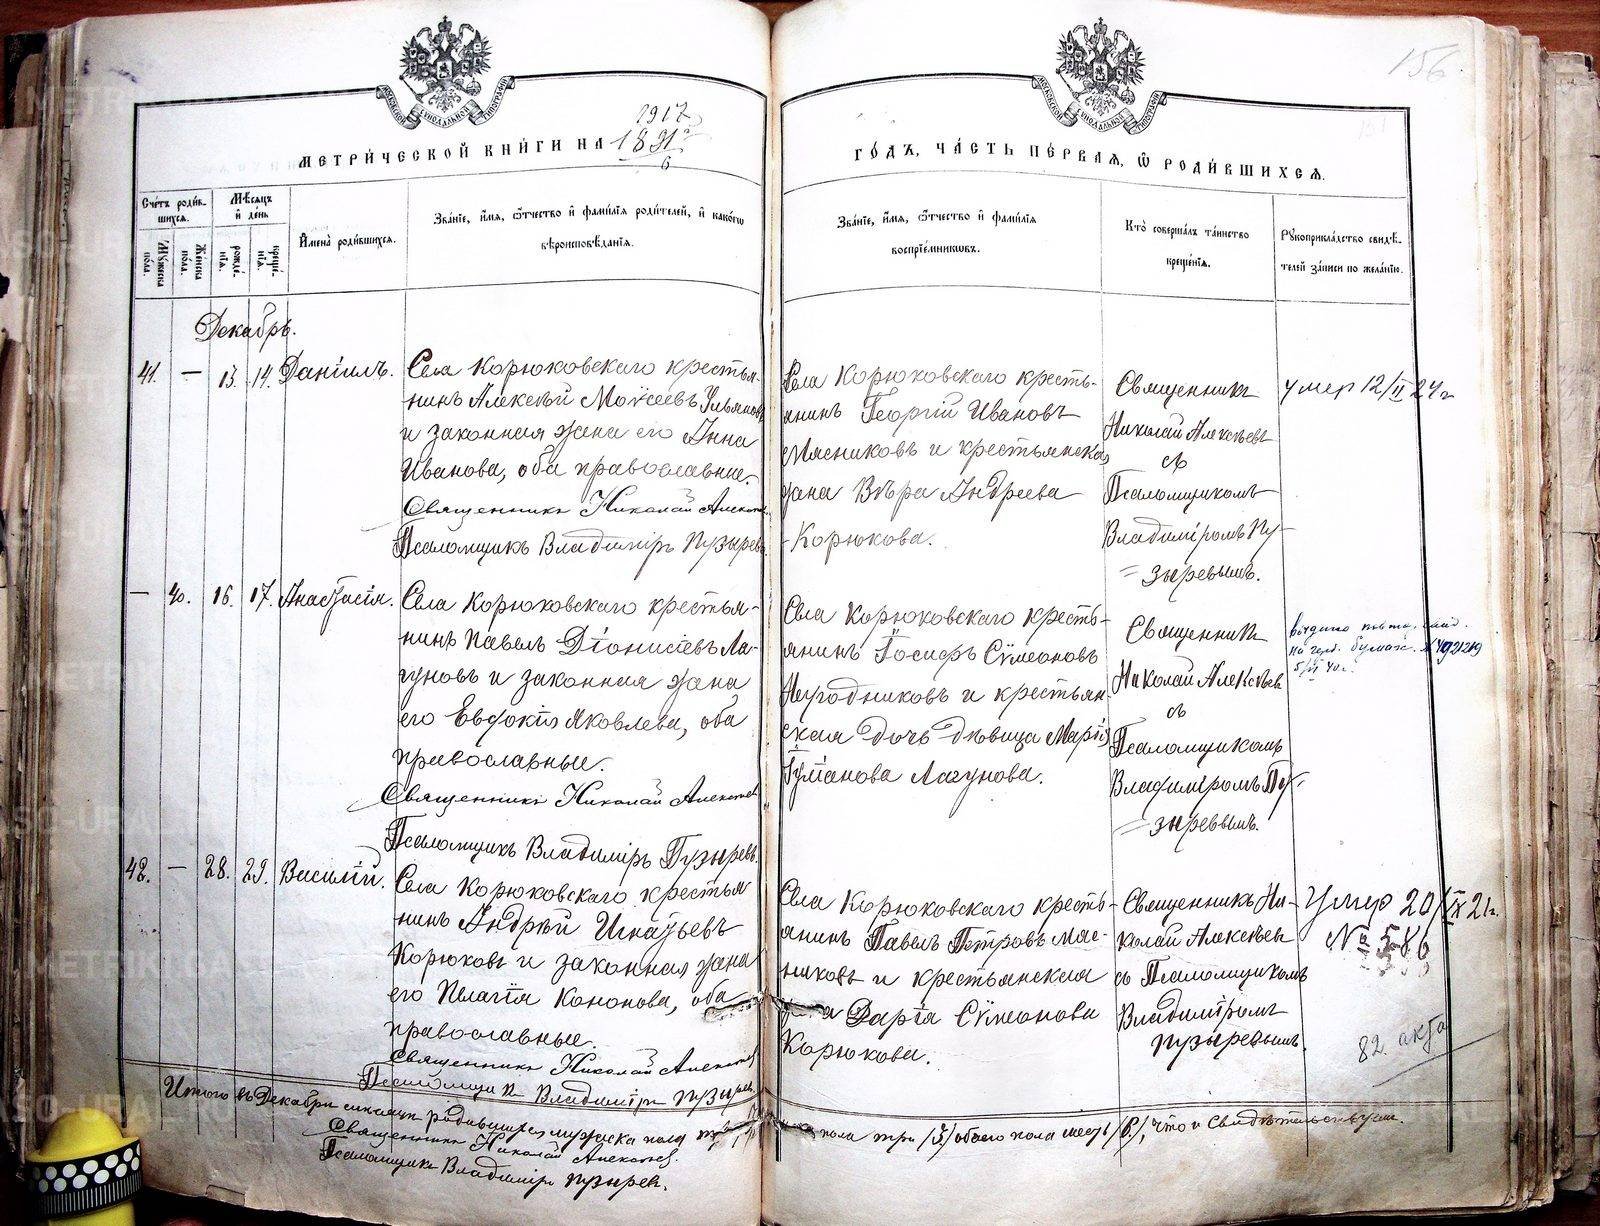 156.
1917
МЕТРИ́ЧЕСКОЙ КНИ́ГИ НА 189
ГО́ДЪ, ЧА́СТЬ ПЕ́РВАЯ, Ѡ РОДИ́ВШИХСЯ.
Сче́тъ роди́в-
шихся.
Мѣ́сяцъ
и҆ де́нь
Мꙋ́жеска
по́ла.
Же́нска
по́ла.
рожде́-
нїѧ.
креще́-
нїѧ.
И҆мена̀ роди́вшихсѧ.
Зва́нїе, и҆́мѧ, ѻ҆́тчество и҆ фами́лїѧ роди́телей, и҆ како́гѡ
вѣроисповѣ́данїѧ.
Зва́нїе, и҆́мѧ, ѻ҆́тчество и҆ фами́лїѧ
воспрїе́мникѡвъ.
Кто̀ соверша́лъ та́инство
креще́нїѧ.
Рꙋкоприкла́дство свидѣ́-
телей за́писи по жела́нїю.
Декабрь.
41. — 13. 14. Данiилъ.
Села Корюковскаго крестья-
нинъ Алексѣй Моѵсеевъ Ульяновъ
и законная жена его Анна
Иванова, оба православные.
Священникъ Николай Алексѣевъ
Псаломщикъ Владимiръ Пузыревъ
Села Корюковскаго кресть-
янинъ Георгiй Ивановъ
Мясниковъ и крестьянская
жена Вѣра Андреева
Корюкова.
Священникъ
Николай Алексѣевъ
съ
Псаломщикомъ
Владимiромъ Пу-
зыревымъ.
умер 12/II 24 г
— 40. 16. 17. Анастасiя.
Села Корюковскаго крестья-
нинъ Павелъ Дiонисiевъ Ла-
гуновъ и законная жена
его Евдокiя Яковлева, оба
православные.
Священникъ Николай Алексѣевъ
Псаломщикъ Владимiръ Пузыревъ.
Села Корюковскаго кресть-
янинъ Iосифъ Сѵмеоновъ
Негодниковъ и крестьян-
ская дочь дѣвица Марiя
Лагунова.
Священникъ
Николай Алексѣевъ
съ
Псаломщикомъ
Владимiромъ Пу-
зыревымъ.
выдано повто. свид.
на герб. бумаге.
5/VI 40 г.
42. — 28. 29. Василiй.
Села Корюковскаго крестья
нинъ Андрей Игнатьевъ
Корюковъ и законная жена
его Пелагiя Кононова, оба
православные.
Священникъ Николай Алексѣевъ
Псаломщикъ Владимiръ Пузыревъ.
Села Корюковскаго кресть-
янинъ Павелъ Петровъ Мяс-
никовъ и крестьянская
жена Дарiя Сѵмеонова
Корюкова.
Священникъ Ни-
колай Алексѣевъ
съ Псаломщикомъ
Владимiромъ
Пузыревымъ.
Умер 20/IX 21 г.
№ 586
82. акта
Итого въ Декабрѣ мѣсяцѣ родившихся мужеска пола
пола три /3/ обоего пола шесть /6/, что и свидѣтельствуемъ.
Священникъ Николай Алексѣевъ.
Псаломщикъ Владимiръ Пузырев.